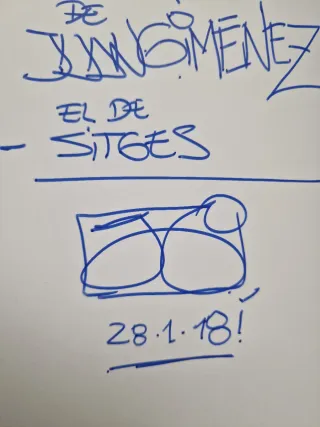 DE
JUAN GIMÉNEZ
EL DE
- SITGES
28.1.18!